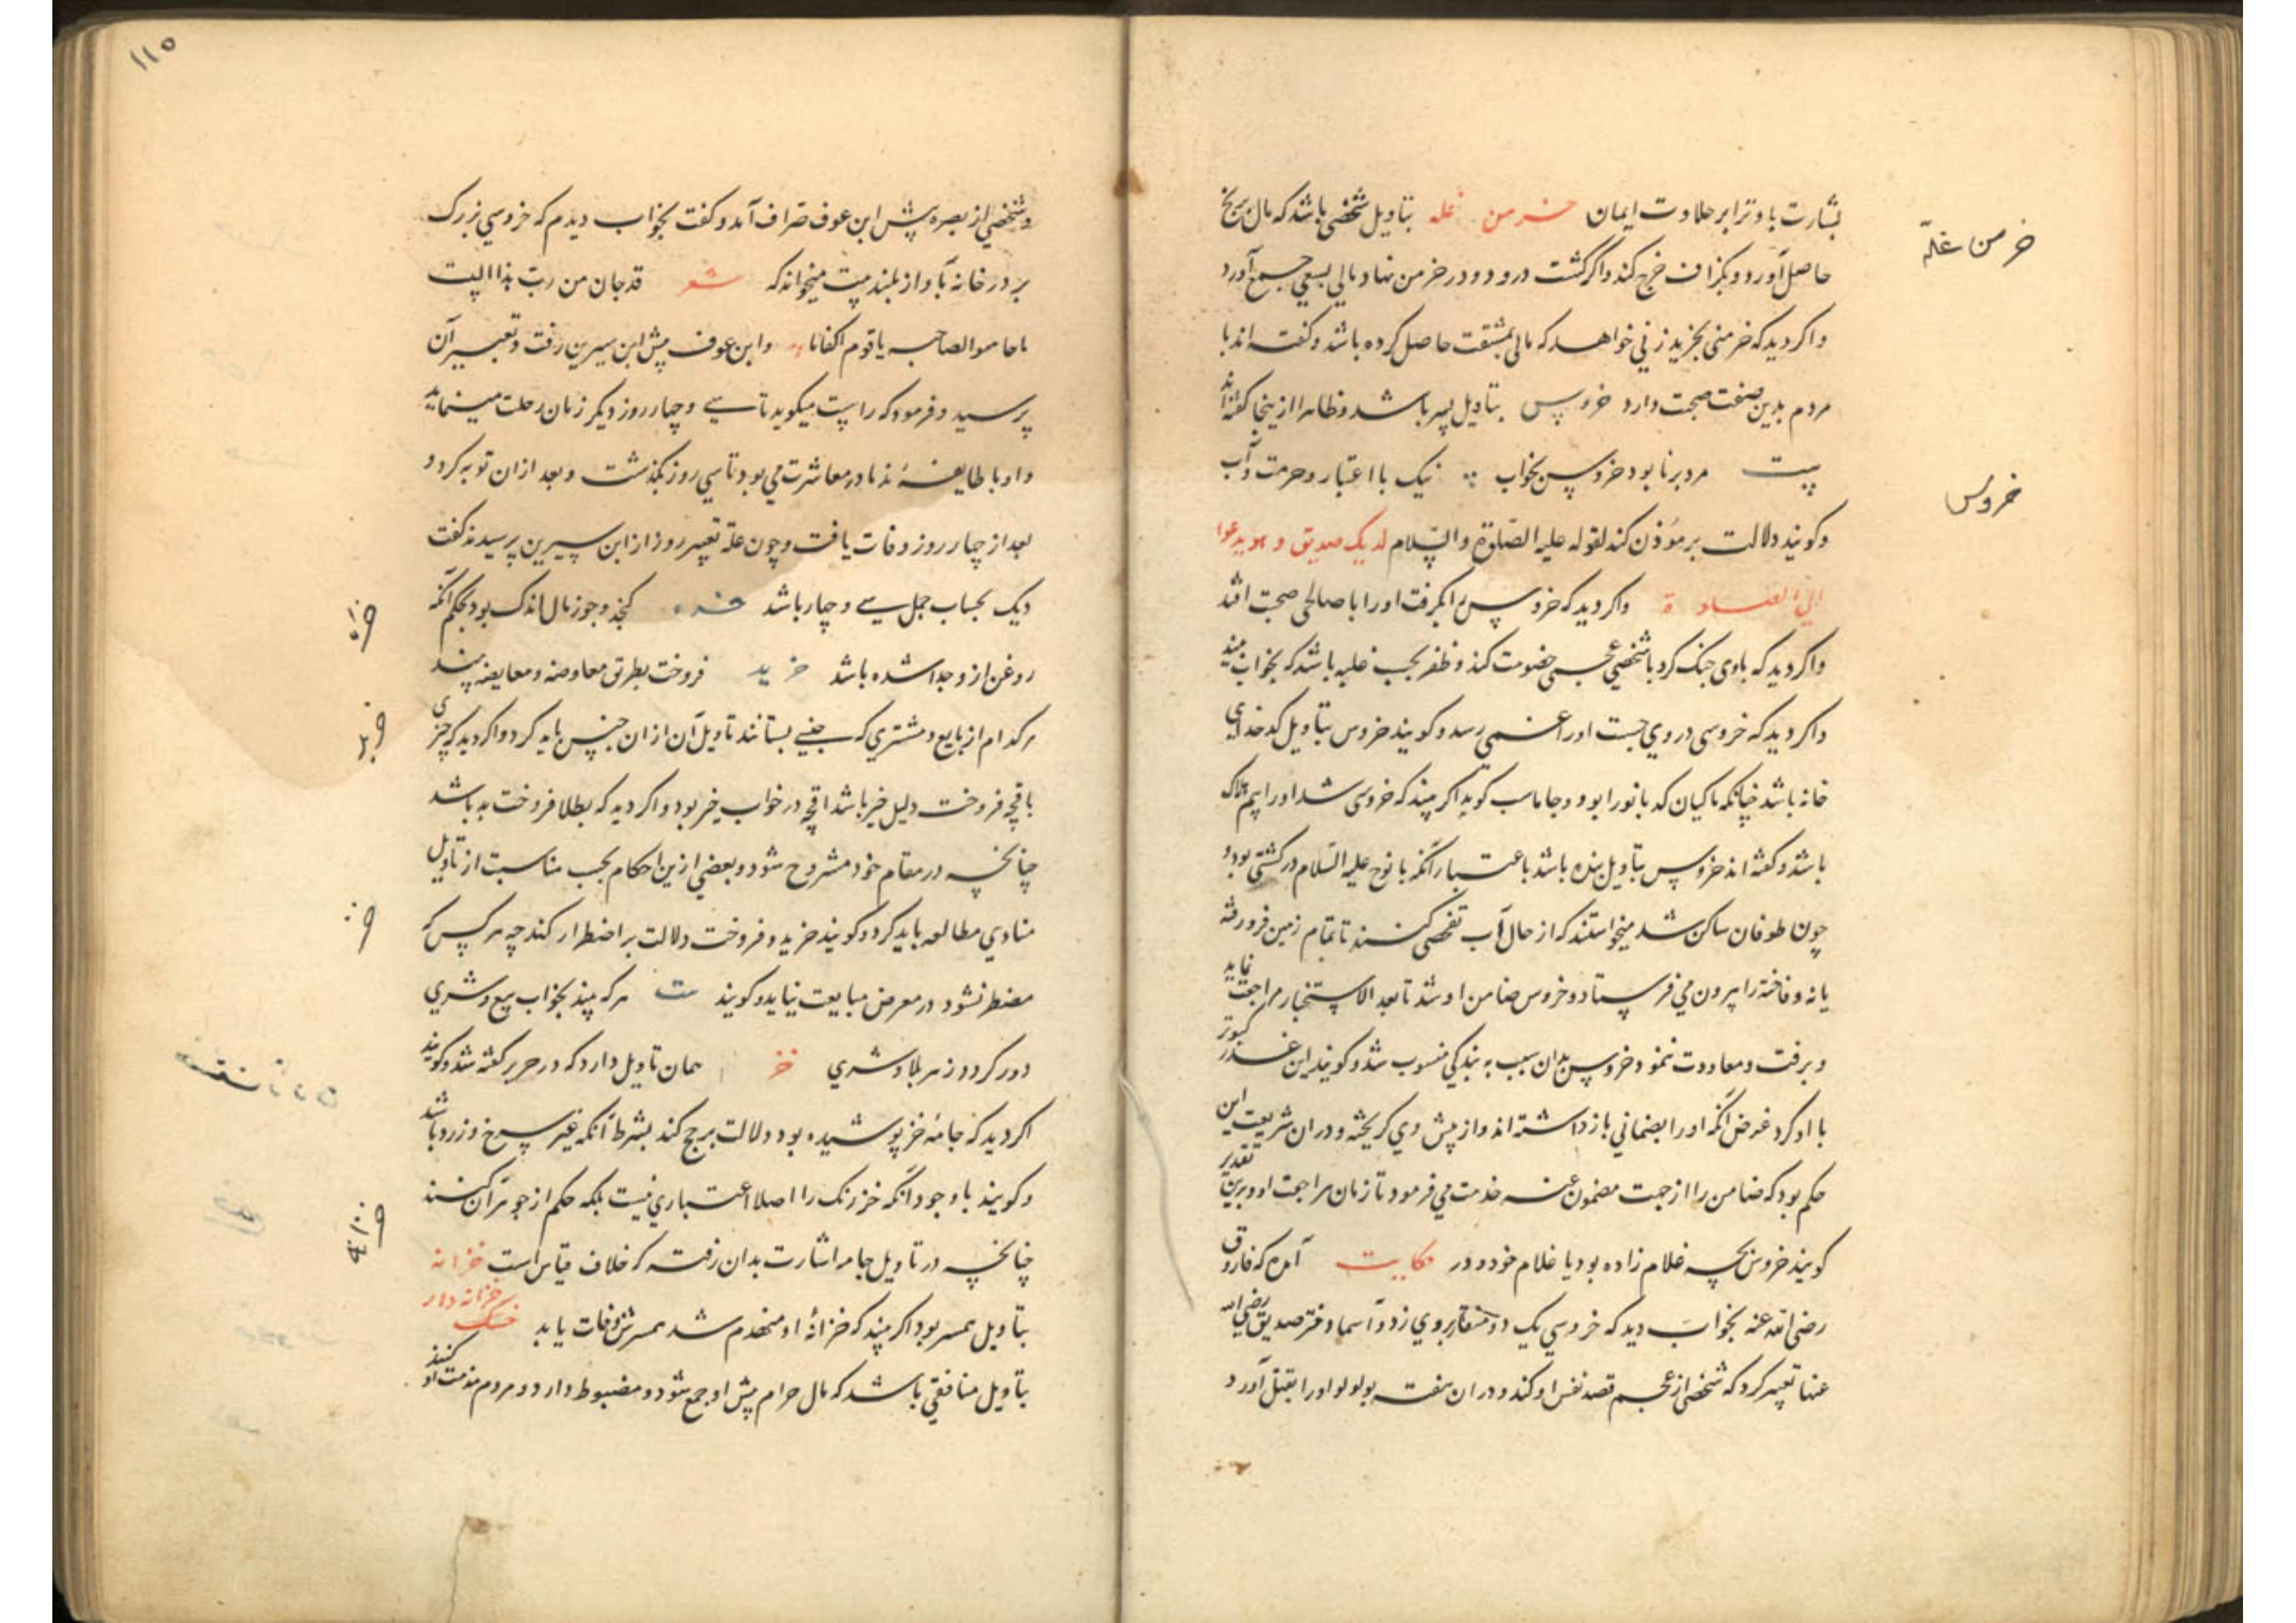 بشارت باد ترا بر حلاوت ایمان خرمن غله بتاویل شخصی باشد که مال برنج
خرمن غلّه
حاصل آورد و بکزاف خرج کند و اکر کشت درود و در خرمن نهاد مالی بسعی جمع آورد
و اکر دید که خرمنی بخرید زنی خواهد که مالی بمشقت حاصل کرده باشد و کفته اند با
مردم بدین صفت صحبت دارد خروس بتاویل پسر باشد و ظاهرا ازینجا کفته اند
بیت مرد برنا بود خروس بخواب نیک با اعتبار و حرمت و آب
خروس
و کویند دلالت بر مؤذن کند لقوله علیه الصلوة والسلام لدیک صدیق و هو یدعوا
الی الصلوة و اکر دید که خروس را بکرفت او را با صالحی صحبت افتد
و اکر دید که با وی جنک کرد با شخصی عجمی خصومت کند و ظفر بحسب غلبه باشد که بخواب بیند
و اکر دید که خروسی در وی جست او را غمی رسد و کویند خروس بتاویل کدخدای
خانه باشد چنانکه ماکیان کدبانو را بود و جاماسب کوید اکر بیند که خروسی شد او را بیم هلاک
باشد و کفته اند خروس بتاویل بنده باشد باعتبار آنکه با نوح علیه السلام در کشتی بود و
چون طوفان ساکن شد میخواستند که از حال آب تفحصی کنند تا بتمام زمین فرو رفته
یا نه و فاخته را بیرون می فرستاد و خروس ضامن او شد تا بعد الاستخبار مراجعت نماید
و برفت و معاودت ننمود و خروس بدان سبب به بندکی منسوب شد و کویند این غدر کبوتر
با او کرد غرض آنکه او را بضمانی باز داشته اند و از پیش وی کریخته و دران شریعت این
حکم بود که ضامن را از جهت مضمون عنه خدمت می فرمود تا زمان مراجعت او و برین تقدیر
کویند خروس بچه غلام زاده بود یا غلام خود و در حکایت آمده که فاروق
رضی الله عنه بخواب دید که خروسی یک دو منقار بر وی زد و اسما دختر صدیق رضی الله
عنها تعبیر کرد که شخصی از عجم قصد نفس او کند و دران هفته بولولو او را بقتل آورد
۱۱۵
و شخصی از بصره پیش ابن عوف صراف آمد و کفت بخواب دیدم که خروسی بزرک
بر در خانه بآواز بلند بیت میخواند که شعر قد حان من رب هذا البیت
یا قوم اکفانا و ابن عوف پیش ابن سیرین رفت و تعبیر آن
پرسید و فرمود که راست میکوید تا سی و چهار روز دیکر زمان رحلت مینماید
و او با طایفهٔ ندما در معاشرت می بود تا سی روز بکذشت و بعد ازان توبه کرد و
بعد از چهار روز وفات یافت و چون علة تعبیر روز از ابن سیرین پرسیدند کفت
دیک بحساب جمل سی و چهار باشد خره کنجد و جوز مال اندک بود بحکم آنکه
روغن از و جدا شده باشد خرید فروخت بطریق معاوضه و معایضه بیند
هر کدام از بایع و مشتری که جنسی بستانند تاویل آن از ان جنس باید کرد و اکر دید که چیزی
باقچه فروخت دلیل خیر باشد اقچه در خواب خیر بود و اکر دید که بطلا فروخت بد باشد
چنانچه در مقام خود مشروح شود و بعضی ازین احکام بحسب مناسبت از تاویل
منادی مطالعه باید کرد و کویند خرید و فروخت دلالت بر اضطرار کند چه هر کس که
مضطر نشود در معرض مبایعت نیاید و کویند بیت هر که بیند بخواب بیع و شری
دور کردد ز هر بلا و شری خز همان تاویل دارد که در حریر کفته شد و کویند
اکر دید که جامهٔ خز پوشیده بود دلالت بر حج کند بشرط آنکه غیر سرخ و زرد باشد
و کویند با وجود آنکه خز رنک را اصلا اعتباری نیست بلکه حکم از جوهر آن کنند
چنانچه در تاویل جامه اشارت بدان رفت که خلاف قیاس است خزانه
خزانه دار
بتاویل همسر بود اکر بیند که خزانهٔ او منهدم شد همسرش وفات یابد خسک
بتاویل منافقی باشد که مال حرام پیش او جمع شود و مضبوط دارد و مردم مذمت او کنند